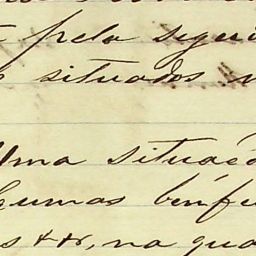 pela segui
situados
Uma situaçã
gumas bemfei
s &&, na qua